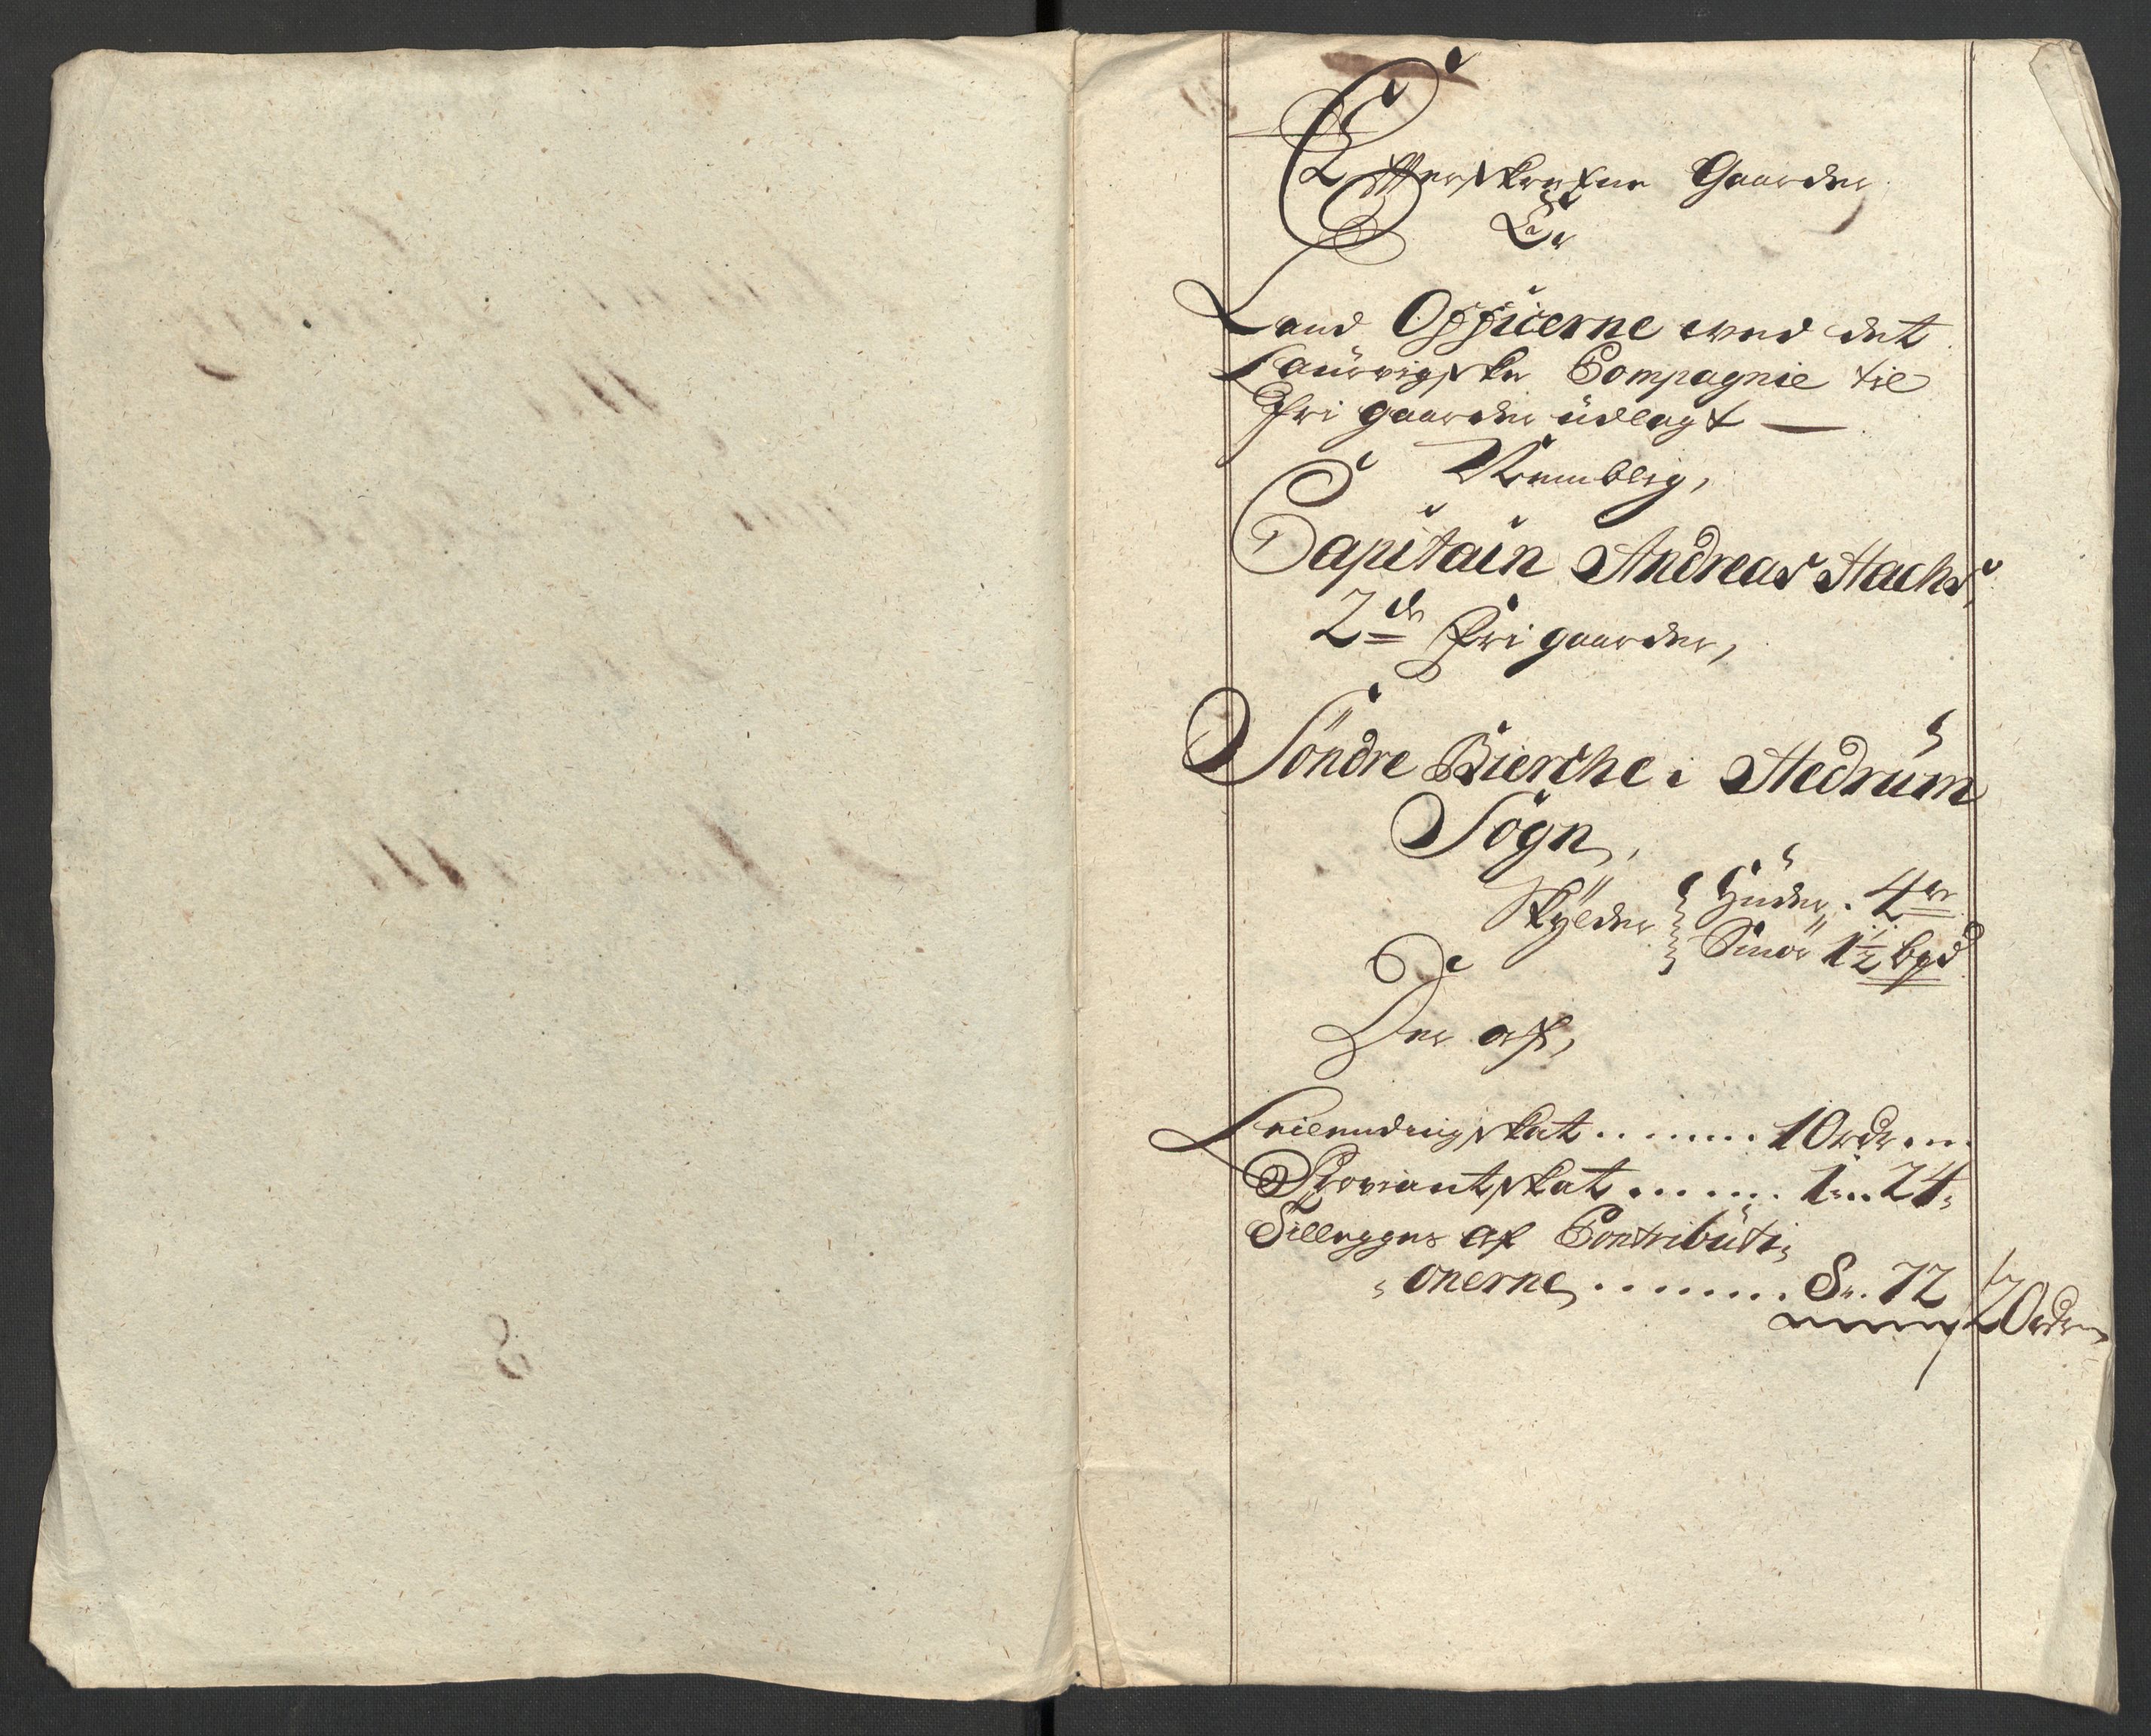 Efterskrefne Gaarder
Er
Land Officerne wed det
Laürvigske Compagnie til
Fri gaarder üdlagt —
Nemblig,
Capitain Andreas Hachs,
2de Fri gaarder,
Söndre Bierche i Hedrüm
Sogn,
Skylder { Hüder . 4re
Smör 1½ bpd
Der af,
Leilendingskat ........ 10rdr ...
Proviantskat ....... 1 .. 24,
Tillegges af Contribüti-
-onerne, ......... 8 .. 72
20rdr